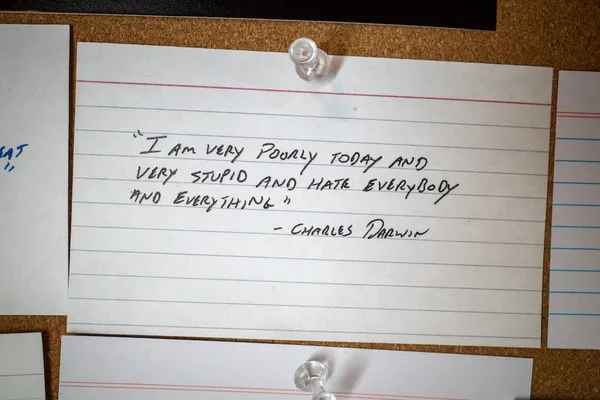 EAT
"
"I AM VERY POORLY TODAY AND
VERY STUPID AND HATE EVERYBODY
AND EVERYTHING"
- CHARLES DARWIN